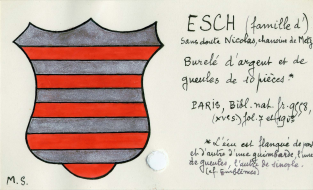 ESCH (famille d')
sans doute Nicolas, chanoine de Metz
Burelé d'argent et de
gueules de 10 pièces.*
PARIS, Bibl. nat. fr. 9558,
(XVIs) fol. 7 et
* L'écu est flanqué de part
et d'autre d'une guimbarde, l'une
de gueules, l'autre de sinople.
(cf. Emblèmes)
M.S.